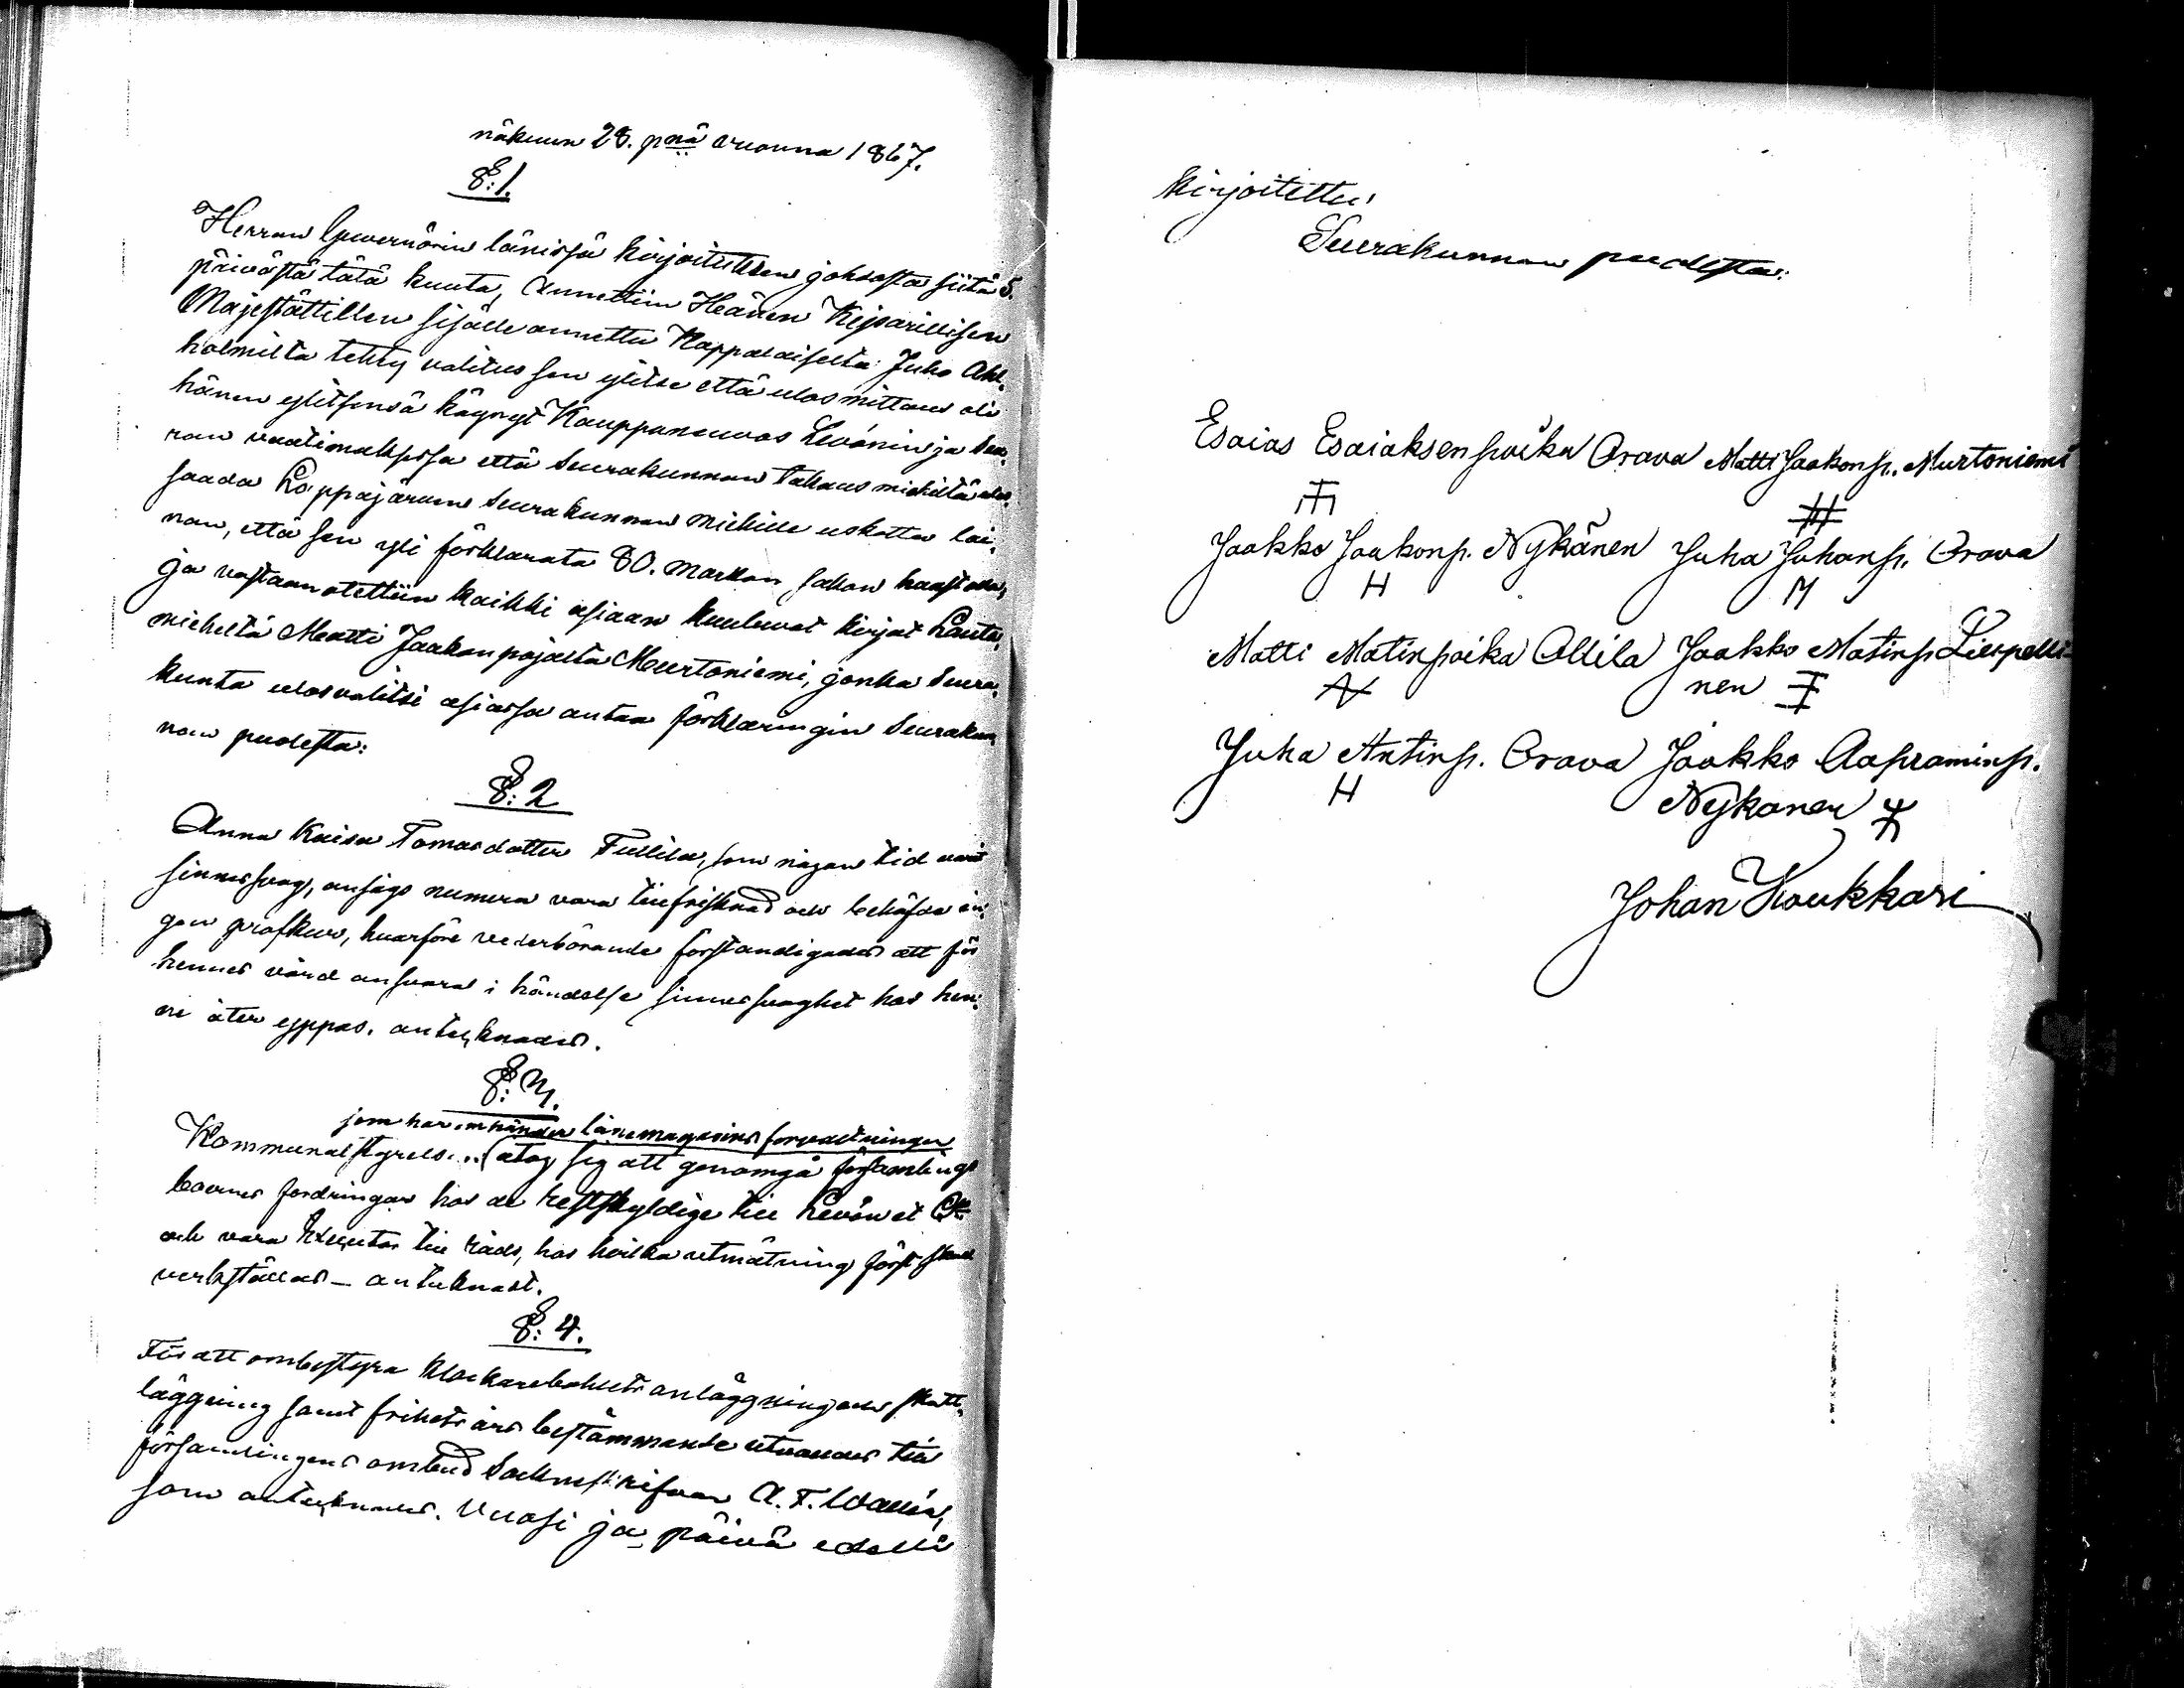 näkuun 28. pnä vuonna 1867.
§: 1.
Herran Guvernörin länissä kirjoituksen johdosta siitä 5.
päivästä tätä kuuta, annettiin Heänen Keisarillisen
Majestättillen sisälle annettu Kappalaiselta Juho Ahl-
holmilta tehty valitus sen ylitse että ulosmittaus oli
hänen ylitsensä käynyt Kauppaneuvos Levónin ja Seu-
ran vaatimuksesa että Seurakunnan takausmiehiltä ulos-
saada Lappajärven Seurakunnan miehille uskottu lai-
nan, että sen yli förklarata 80. markan sakon haastolla,
ja vastaanotettiin kaikki asiaan kuuluvat kirjat Lauta-
mieheltä Matti Jaakonpojalta Murtoniemi, jonka Seura-
kunta ulosvalitsi asiassa antaa förklaringin Seurakun-
nan puolesta:
§: 2
Anna Kaisa Tomasdotter Tullila, som någon tid varit
sinnessvag, ansågs numera vara tillfrisknad och behöfde in-
gen profkur, hvarföre vederbörande förständigades att för
hennes vård ansvara i händelse sinnessvaghet hos hen-
ne åter yppas. antecknades.
§: 3.
som har omhänder lånemagasins förvaltningen
Kommunalstyrels... åtog sig att genomgå församlings
boernes fordringar hos de restskyldige till Levón et C:o
och vara till råds, hos hvilka utmätning först skall
verkställas – antecknadt.
§: 4.
För att ombestyra Klockarebohlets anläggning och skatt-
läggning samt frihets års bestämmande utvaldes till
församlingens ombud Sockneskrifvar A. F. Wallin,
som antecknades. Vuosi ja päivä edellä
kirjoitettu,
Seurakunnan puolesta:
Esaias Esaiaksenpoika Orava Matti Jaakonp. Murtoniemi
Jaakko Jaakonp. Nykänen Juha Juhanp. Orava
H M
Matti Matinpoika Ollila Jaakko Matinp. Liespelli-
nen
Juha Antinp. Orava Jaakko Aapraminp.
H Nykanen
Johan Koukkari